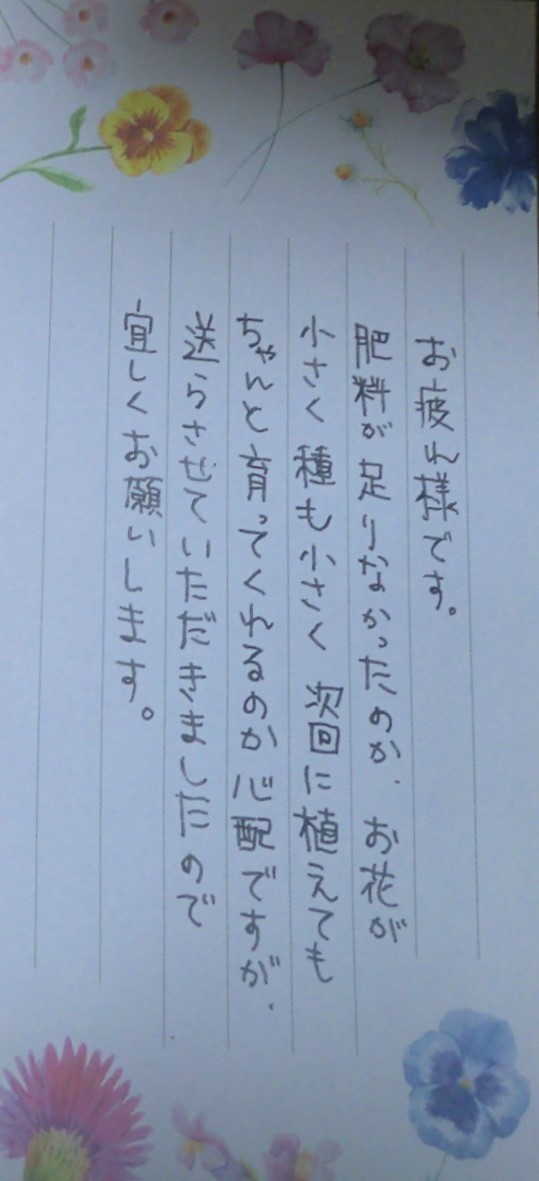 お疲れ様です。
肥料が足りなかったのか、お花が
小さく種も小さく 次回に植えても
ちゃんと育ってくれるのか心配ですが、
送らさせていただきましたので
宜しくお願いします。